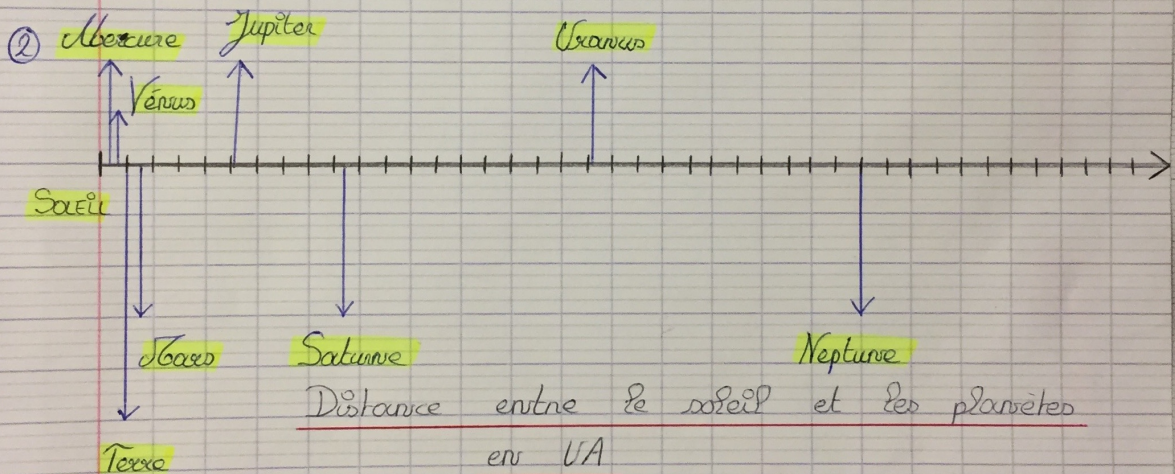 ② Mercure Jupiter Uranus
Vénus
SOLEIL
Mars Saturne Neptune
Distance entre le soleil et les planètes
en UA
Terre